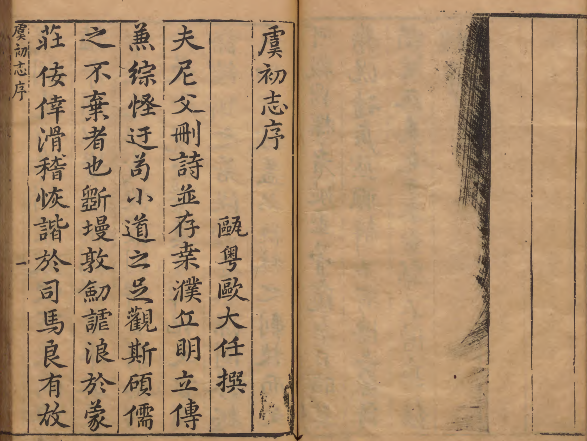 虞初志序
甌粤歐大任撰
夫尼父刪詩並存桒濮丘明立傳
兼綜怪迂苟小道之足觀斯碩儒
之不棄者也斵墁敦劒謔浪於蒙
莊佞倖滑稽恢諧於司馬良有放
虞初志序
一